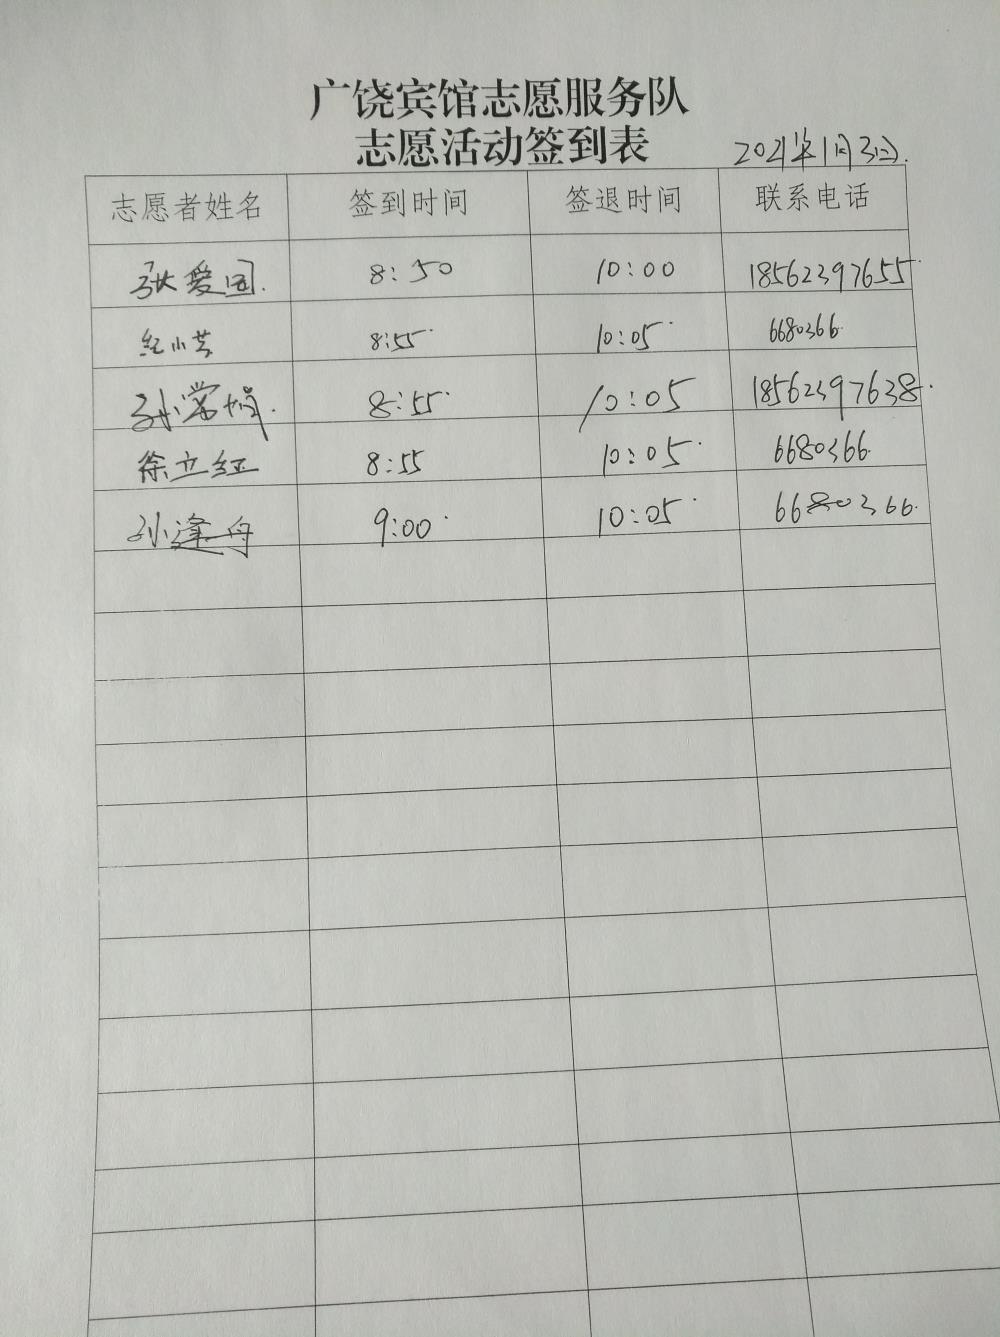 广饶宾馆志愿服务队
志愿活动签到表
2021年1月3日.
志愿者姓名 签到时间 签退时间 联系电话
张爱国. 8:50 10:00 18562397655.
纪小芸 8:55 10:05 6680366
孙常 8:55 10:05 18562397638.
徐立红 8:55 10:05 6680366.
孙逢舟 9:00 10:05 6680366.